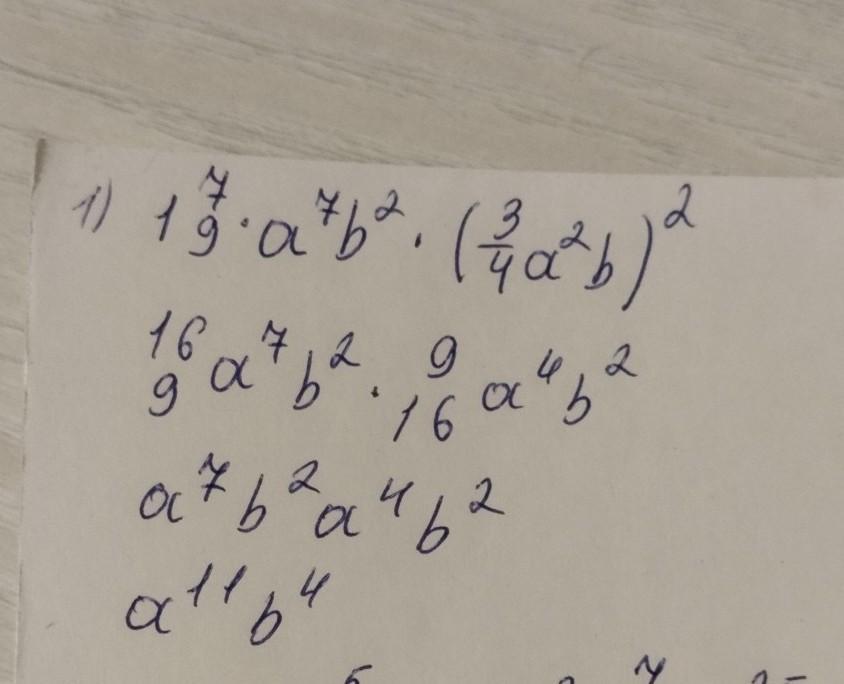 1) 1 7/9 · a⁷b² · (3/4 a²b)²
16/9 a⁷b² · 9/16 a⁴b²
a⁷b²a⁴b²
a¹¹b⁴